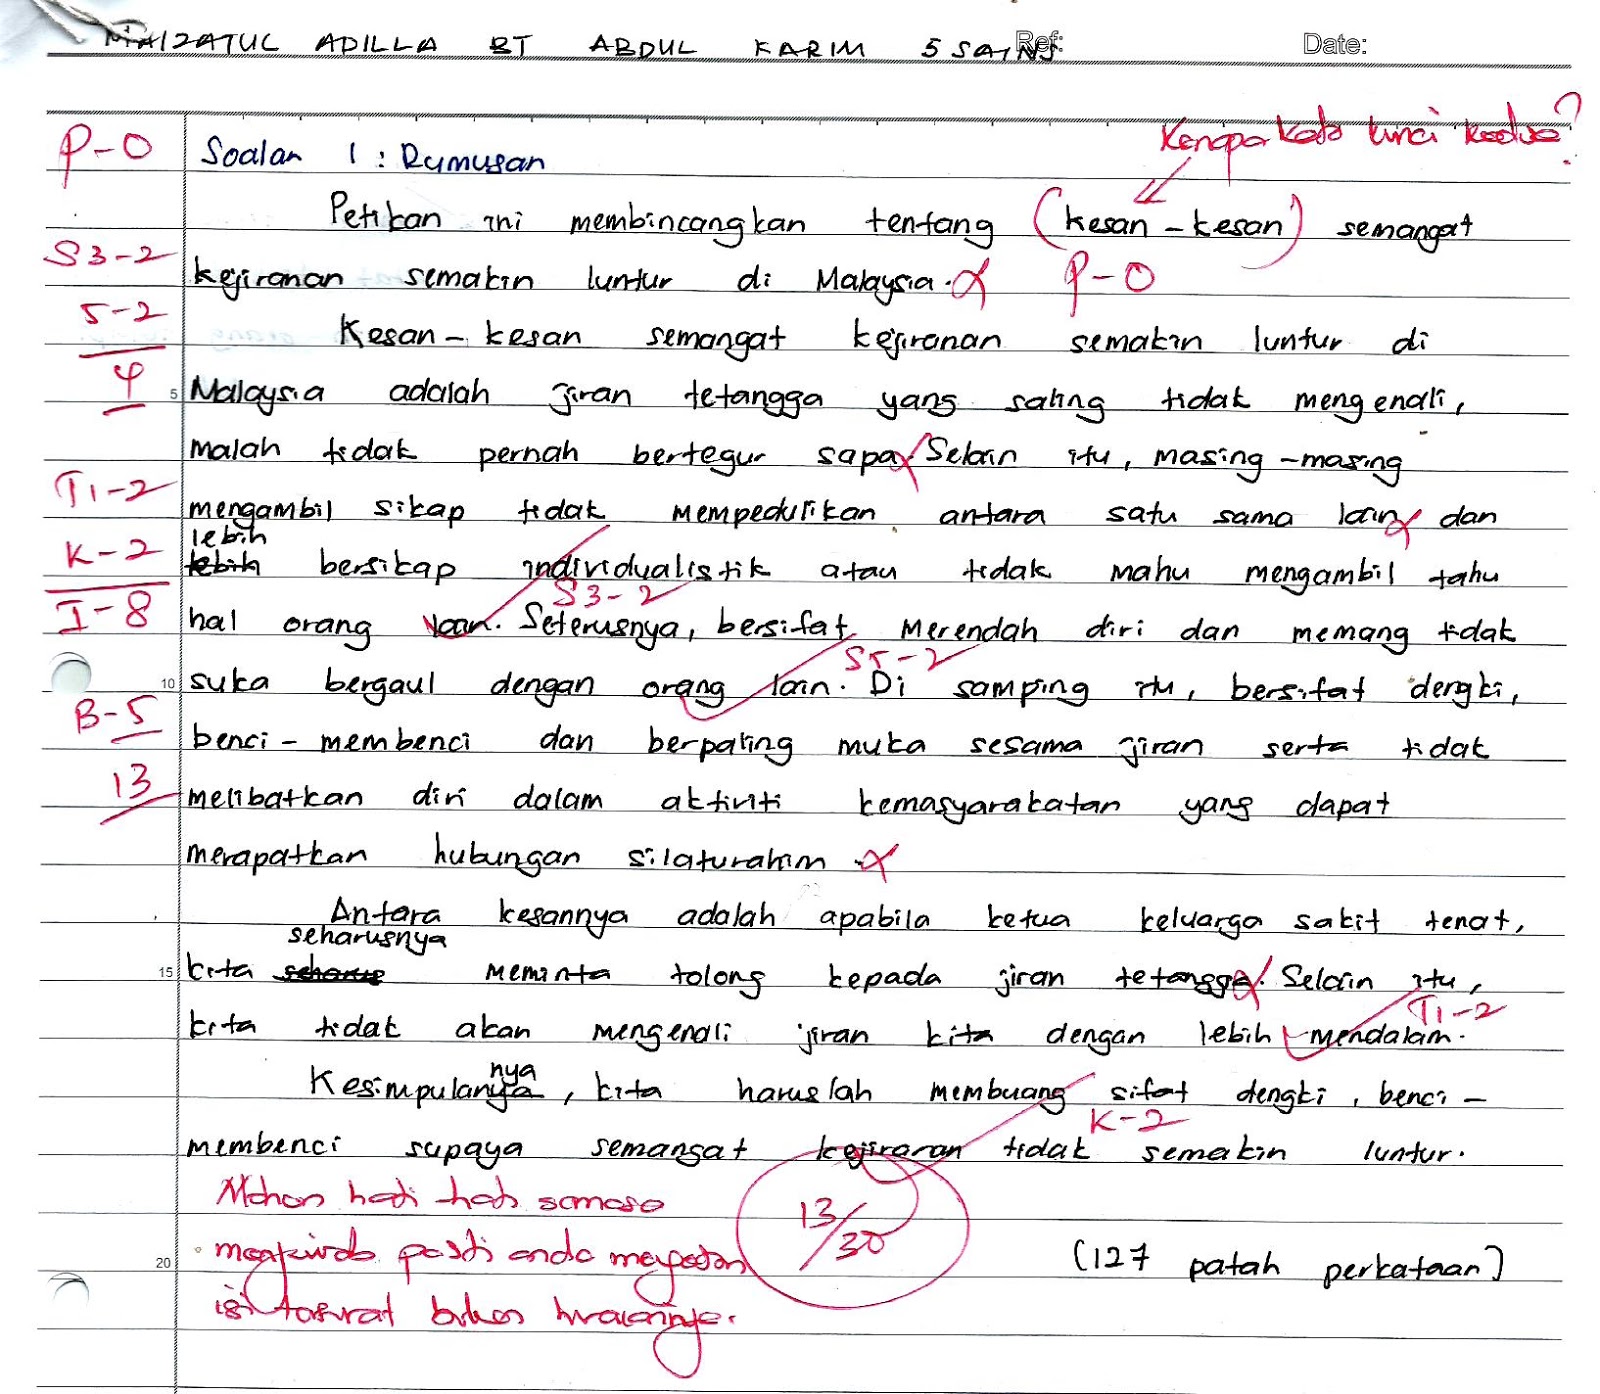 MAIZATUL ADILLA BT ABDUL KARIM 5 SAINS Ref: Date:
Kenapa kata kunci kedua?
P-0 Soalan 1 : Rumusan
Petikan ini membincangkan tentang (kesan-kesan) semangat
S3-2
kejiranan semakin luntur di Malaysia. P-0
5-2
Kesan-kesan semangat kejiranan semakin luntur di
4
5 Malaysia adalah jiran tetangga yang saling tidak mengenali,
malah tidak pernah bertegur sapa. Selain itu, masing-masing
T1-2
mengambil sikap tidak mempedulikan antara satu sama lain dan
K-2 lebih
lebih bersikap individualistik atau tidak mahu mengambil tahu
I-8 S3-2
hal orang lain. Seterusnya, bersifat merendah diri dan memang tidak
S5-2
10 suka bergaul dengan orang lain. Di samping itu, bersifat dengki,
B-5
benci-membenci dan berpaling muka sesama jiran serta tidak
13
melibatkan diri dalam aktiviti kemasyarakatan yang dapat
merapatkan hubungan silaturahim.
Antara kesannya adalah apabila ketua keluarga sakit tenat,
seharusnya
15 kita meminta tolong kepada jiran tetangga. Selain itu,
T1-2
kita tidak akan mengenali jiran kita dengan lebih mendalam.
nya
Kesimpulanya, kita haruslah membuang sifat dengki, benci-
K-2
membenci supaya semangat kejiranan tidak semakin luntur.
Mohon hati-hati semasa
13/30
20 pasti anda
(127 patah perkataan)
isi tersurat bukan huraiannya.